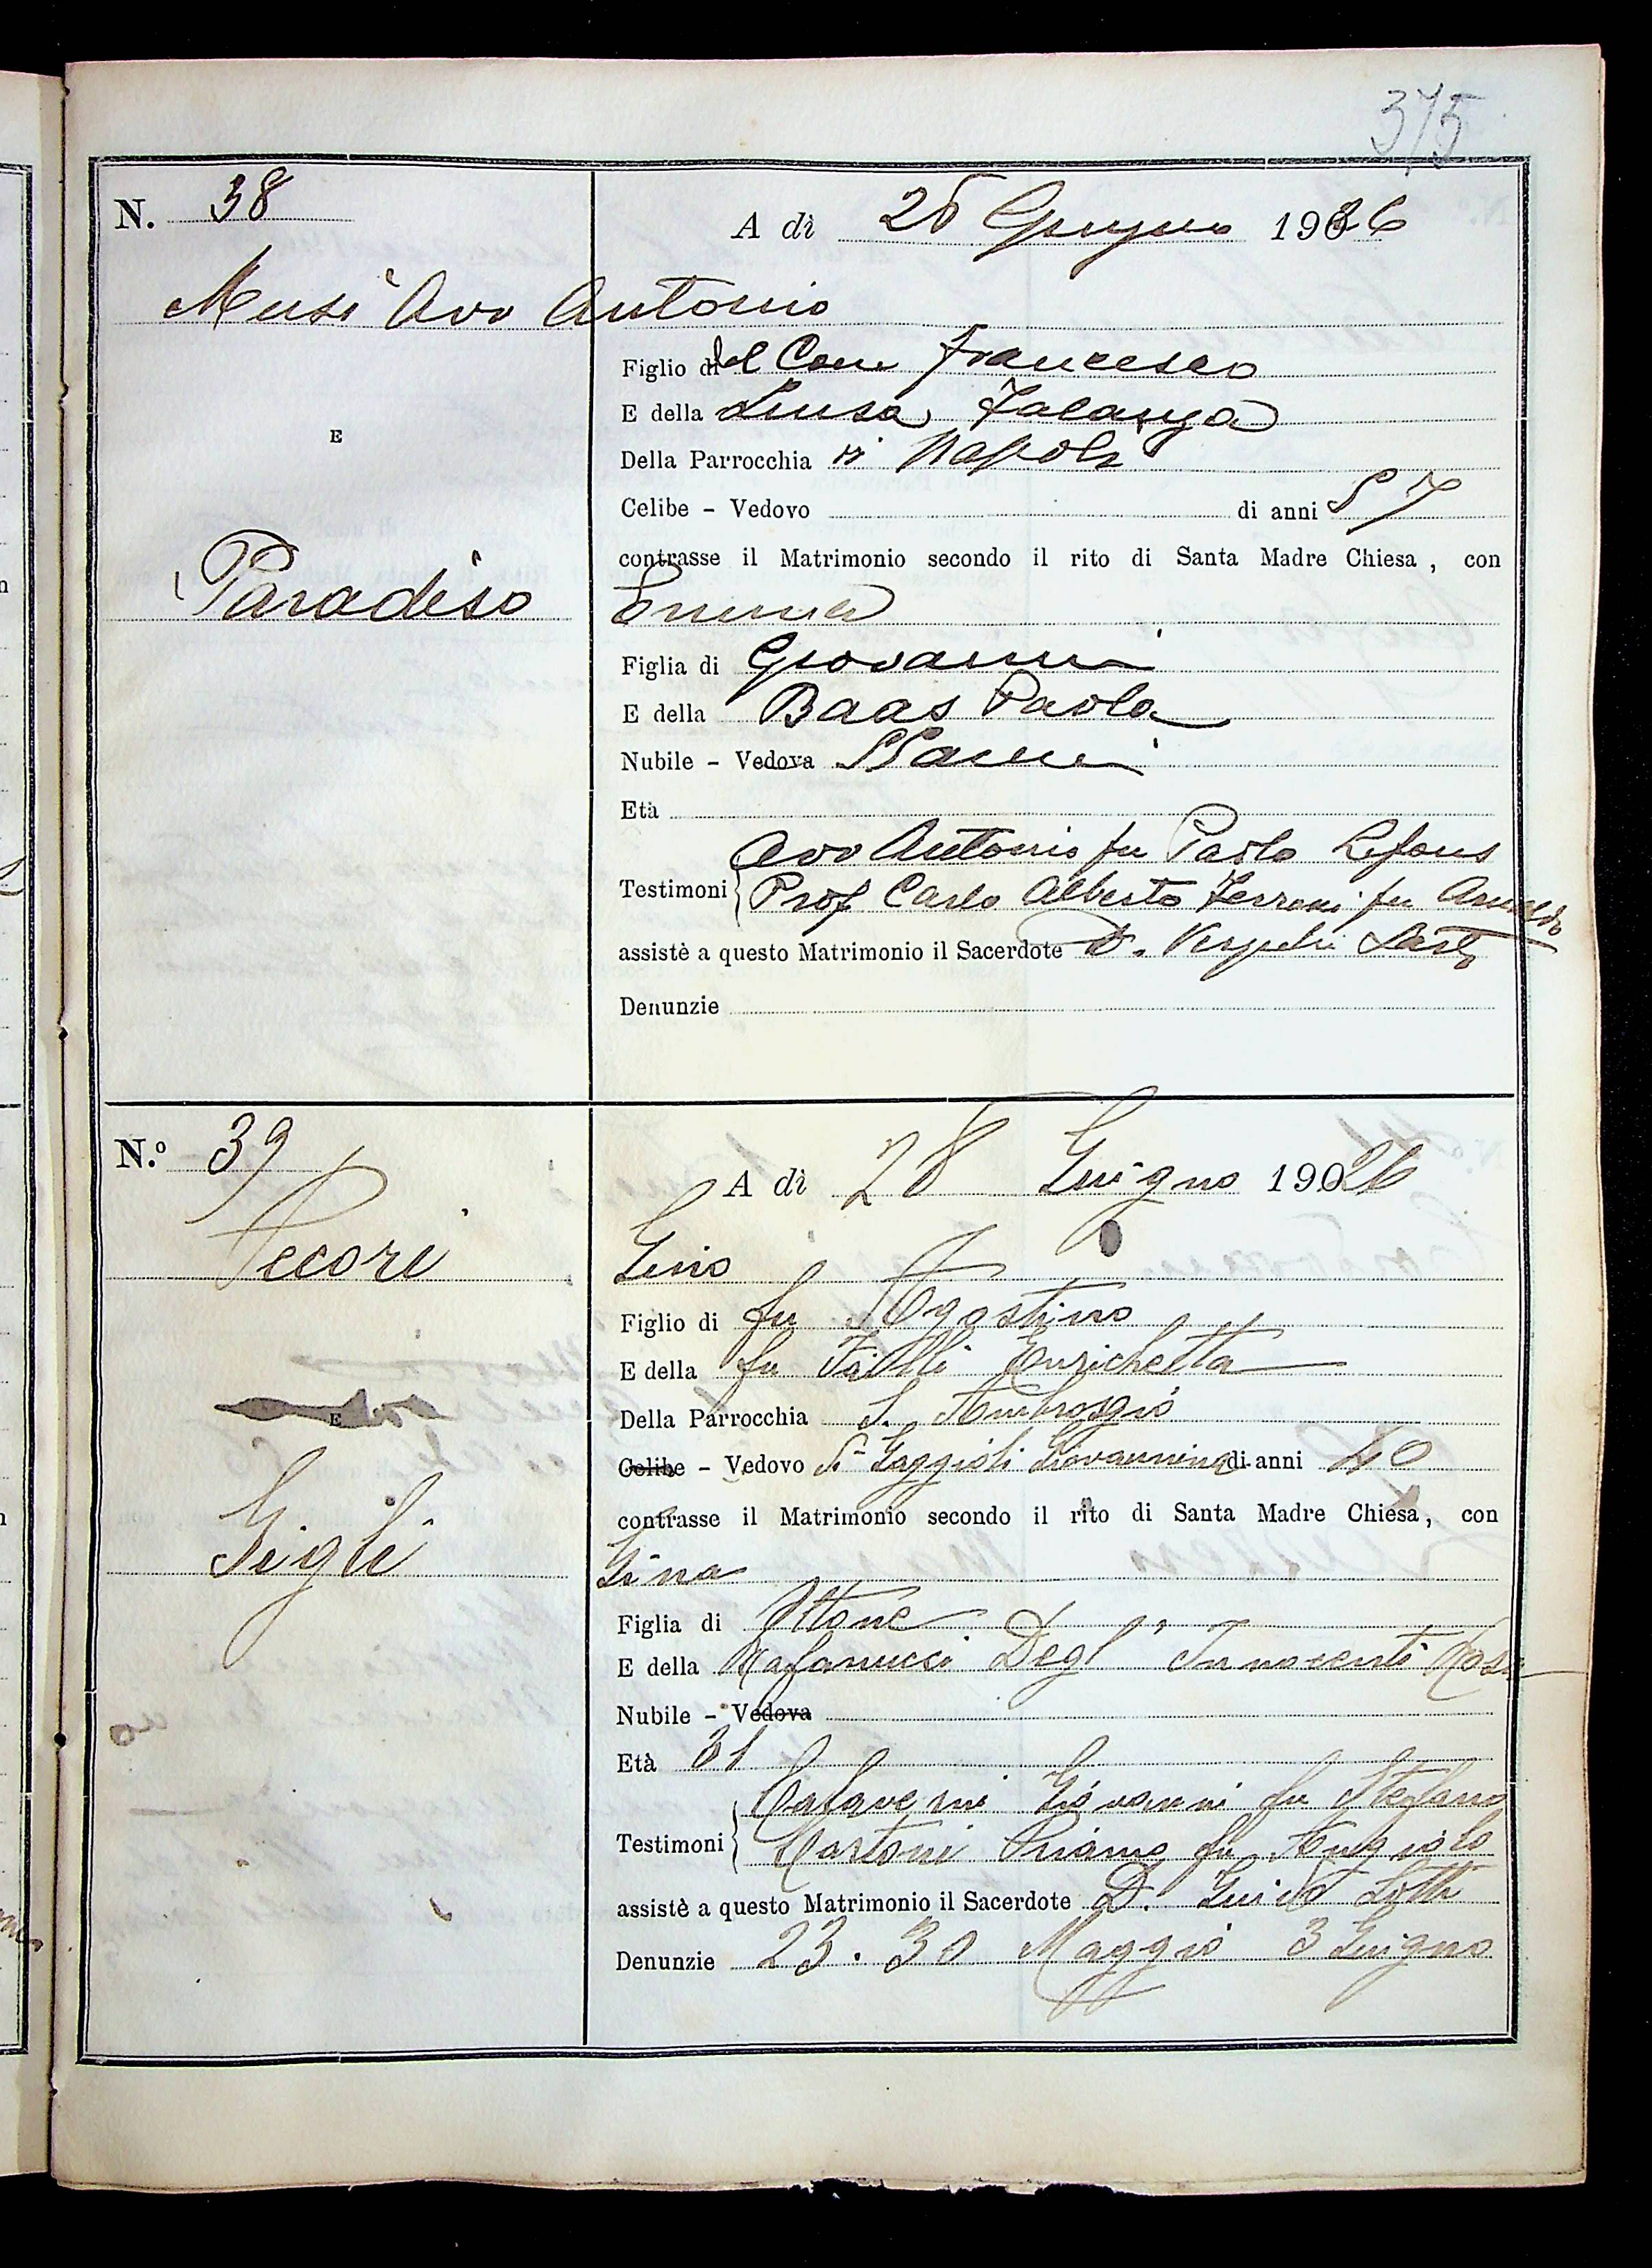 375
N. 38
A dì 26 Giugno 1926
Musi Avv Antonio
Figlio del Com Francesco
E della Luisa Falanga
E
Della Parrocchia di Napoli
Celibe - Vedovo di anni 57
contrasse il Matrimonio secondo il rito di Santa Madre Chiesa, con
Paradiso Emma
Figlia di Giovanni
E della Baas Paola
Nubile - Vedova
Età
Avv Antonio fu Paolo Lefons
Testimoni Prof Carlo Alberto Ferroni fu
assistè a questo Matrimonio il Sacerdote D.
Denunzie
N.º 39
A dì 28 Giugno 1926
Pecori Gino
Figlio di fu Agostino
E della fu Enrichetta
Della Parrocchia S. Ambrogio
E
Celibe - Vedovo di Gaggioli Giovannina di anni 40
contrasse il Matrimonio secondo il rito di Santa Madre Chiesa, con
Gigli Gina
Figlia di Ottone
E della Degl' Innocenti Rosa
Nubile - Vedova
Età 31
Calaverni Giovanni fu Stefano
Testimoni Martoni Priamo fu Angiolo
assistè a questo Matrimonio il Sacerdote D. Guido Lotti
Denunzie 23. 30 Maggio 3 Giugno